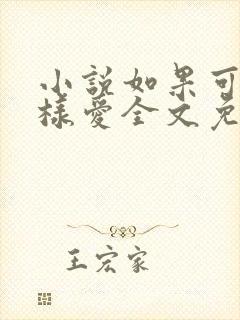 小説如果可
樣愛全文免
王宏家